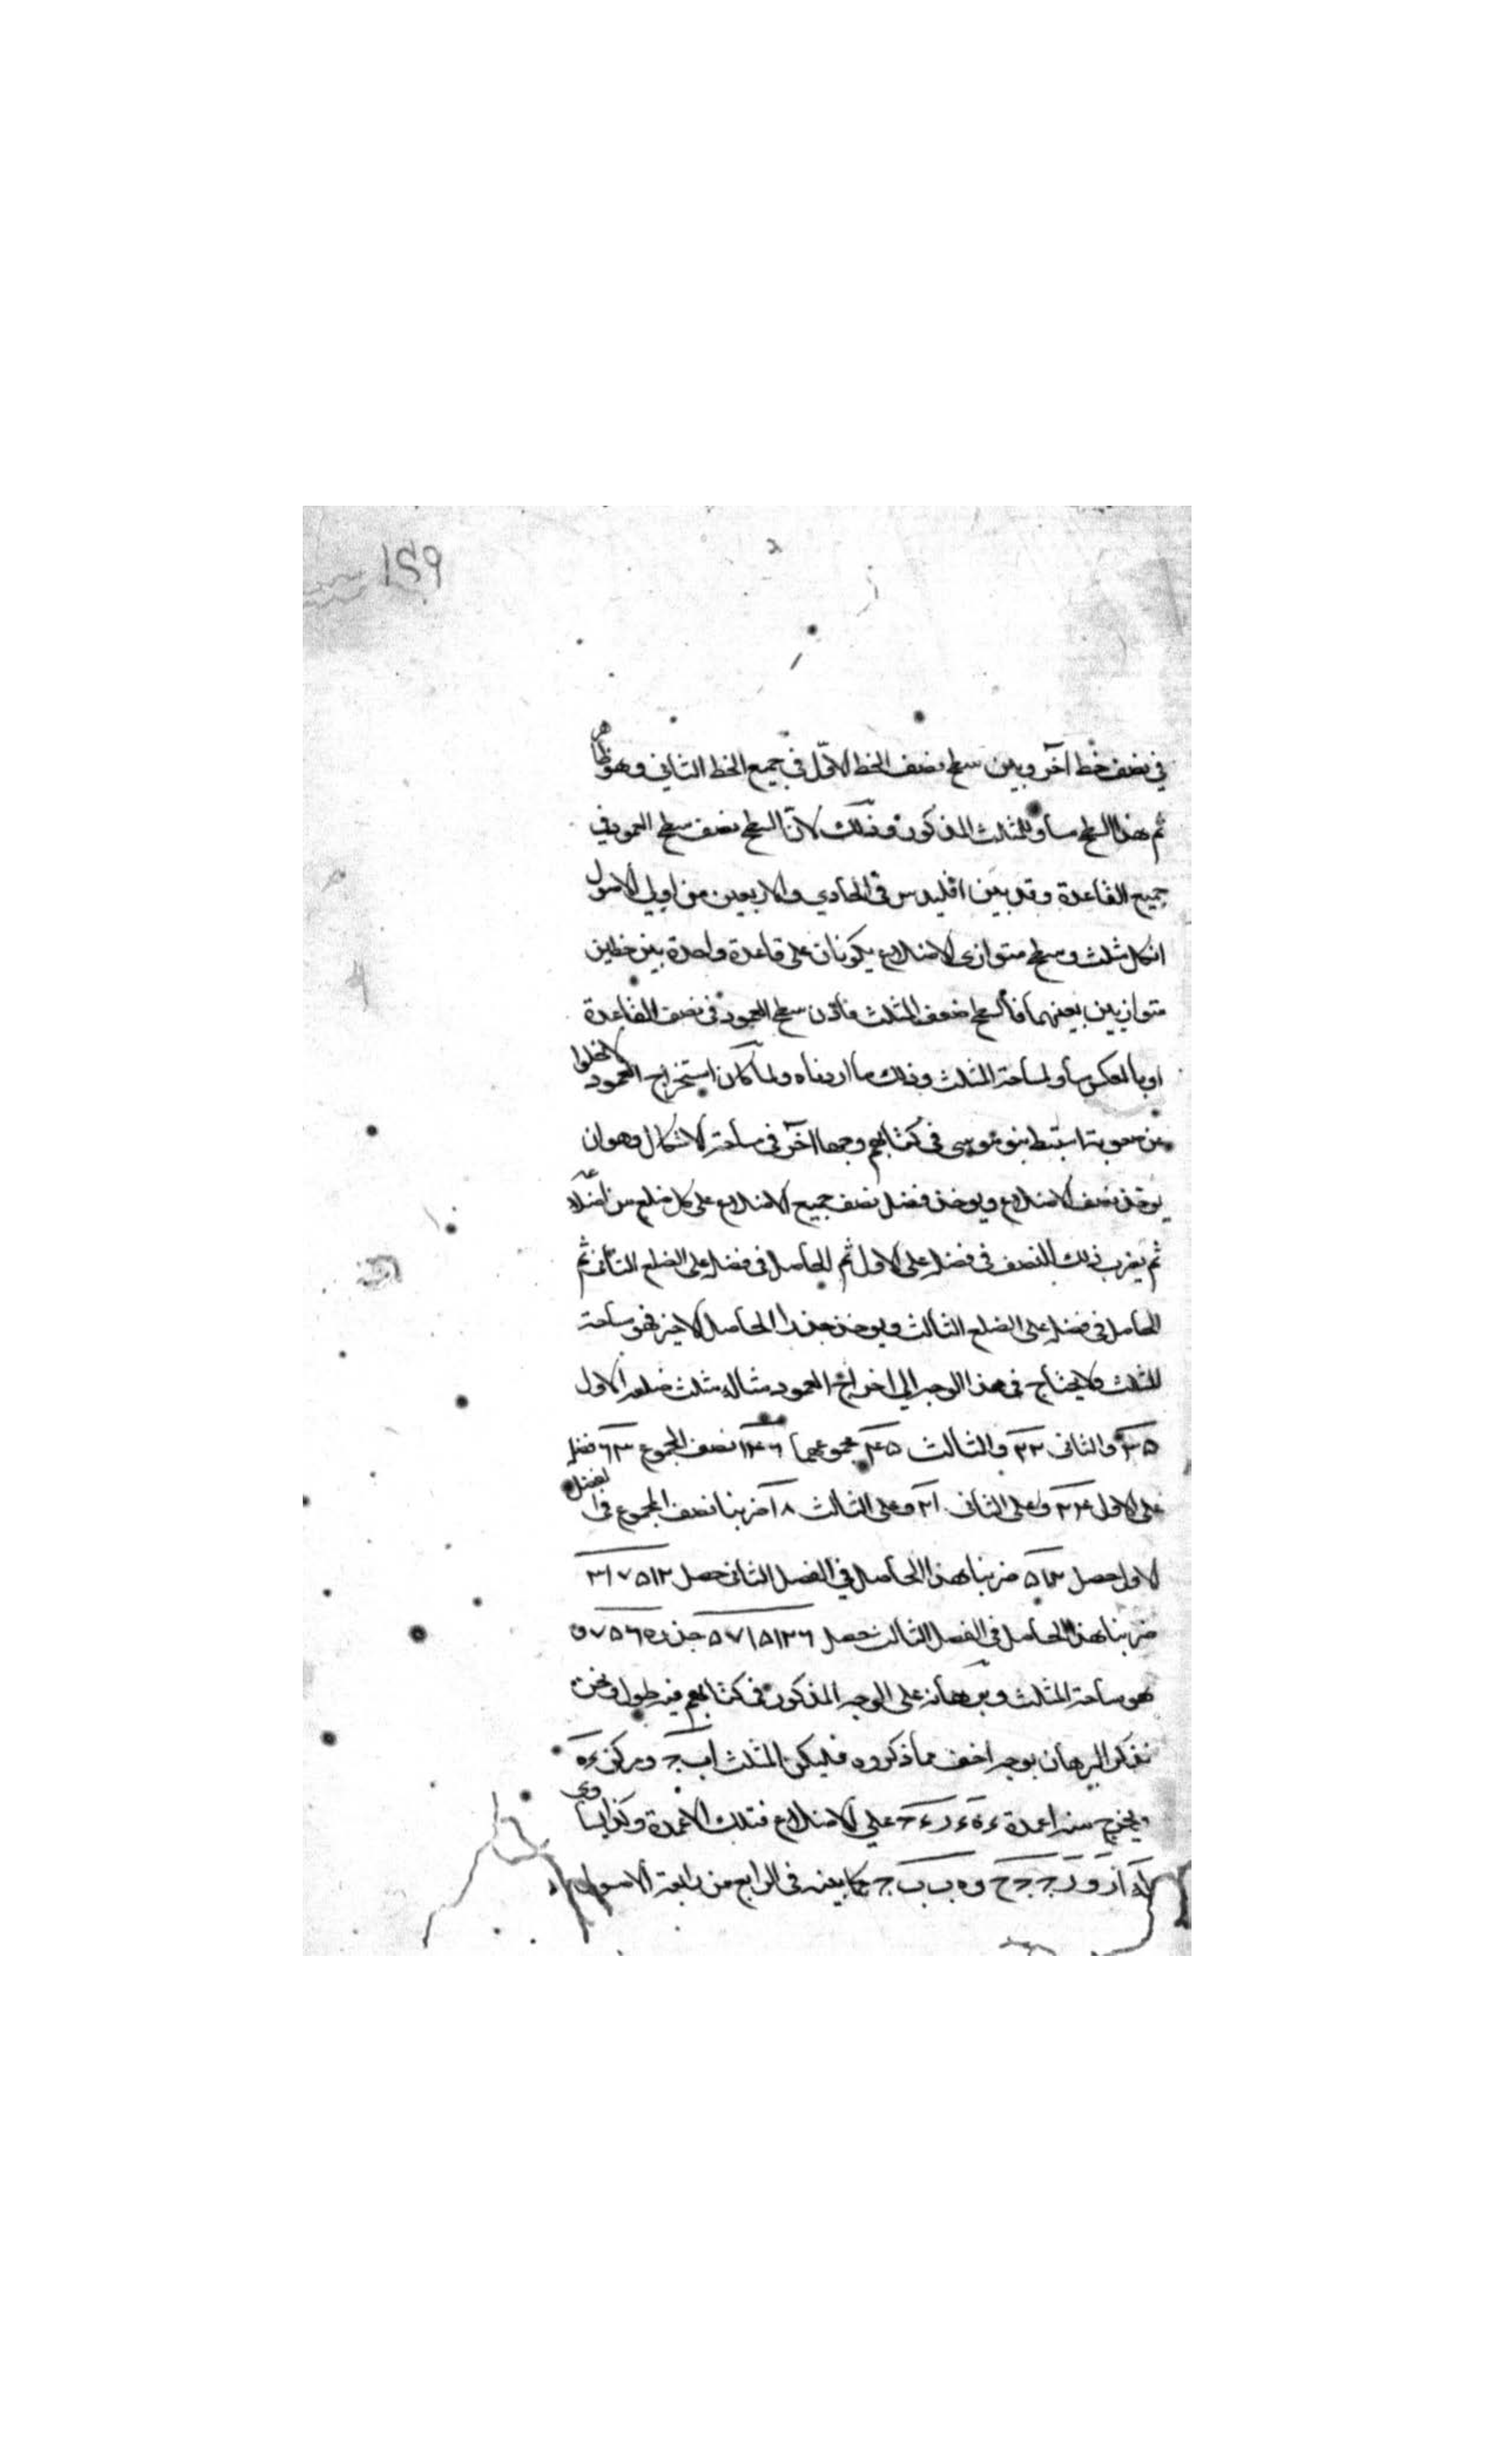 ١٤٩
في نصف خط آخر وبين سطح نصف الخط الاوّل في جميع الخط الثاني وهو ظاهر
ثم هذا السطح مساو للمثلث المذكور وذلك لانّ السطح نصف سطح العمود في
جميع القاعدة وقد بيّن اقليدس في الحادي والاربعين من اولي الاصول
ان كل مثلث وسطح متوازى الاضلاع يكونان على قاعدة واحدة بين خطين
متوازيين بعينهما فالسطح ضعف المثلث فاذن سطح العمود في نصف القاعدة
او بالعكس مساو لمساحة المثلث وذلك ما اردناه ولما كان استخراج العمود لا يخلوا
عن صعوبة استنبط بنو موسى في كتابهم وجها آخر في مساحة الاشكال وهو ان
يوخذ نصف الاضلاع ويوخذ فضل نصف جميع الاضلاع على كل ضلع من اضلاعه
ثم يضرب ذلك النصف في فضله على الاول ثم الحاصل في فضله على الضلع الثانى ثم
الحاصل في فضله على الضلع الثالث ويوخذ جذر الحاصل الاخير فهو مساحة
المثلث فلا يحتاج في هذا الوجه الي اخراج العمود مثاله مثلث ضلعه الاول
والثانى والثالث مجموعهما ١٢٦ نصف المجموع ٦٣ فضله
على الاول وعلى الثانى وعلى الثالث ١٨ ضربنا نصف المجموع في الفضل
الاول حصل ضربنا هذا الحاصل في الفضل الثانى حصل
ضربنا هذا الحاصل في الفضل الثالث حصل جذره ٧٥٦ و
هو مساحة المثلث وبرهانه على الوجه المذكور في كتابهم فيه طول ونحن
نذكر البرهان بوجه اخف مما ذكروه فليكن المثلث ا ب ج ومركز
ويخرج منه اعمدة على الاضلاع فتلك الاعمدة وكذا يساوى
كما بينه في الرابع من رابعة الاصول